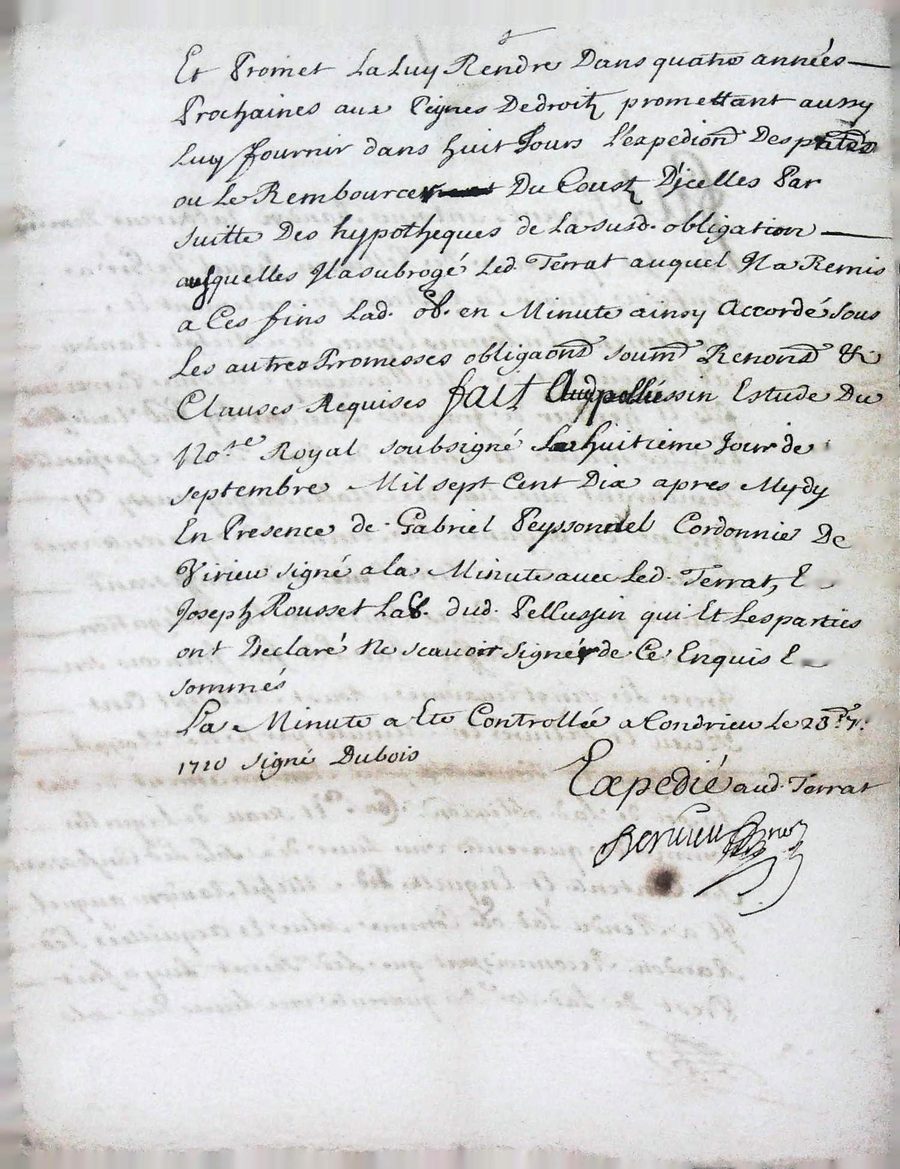 Et Promet La Luy Rendre Dans quatre années
Prochaines aux Peynes Dedroit, promettant aussy
Luy fournir dans huit Jours L'expedion Desp̃ntes
ou Le Rembource Du Coust D'jcelles Par
suitte Des hypotheques de La susd. obligation
ausquelles Jl a subrogé Led. Terrat auquel Jl a Remis
a Ces fins Lad. ob. en Minute ainsy Accordé sous
Les autres Promesses obligaons soumˢ Renonˢ &
Clauses Requises fait Aud pellussin Estude Du
No.re Royal soubsigné Le huitieme Jour de
septembre Mil sept Cent Dix apres Mydy
En Presence de Gabriel Peyssonnel Cordonnie De
Virieu signé a la Minute avec Led. Terrat, E
Joseph Rousset Lab. dud. Pellussin qui Et Les parties
ont Declaré Ne scavoir signer de Ce Enquis E
sommés
La Minute a Ete Controllée a Condrieu Le 23.e 7.
1710 signé Dubois
Expedié aud. Terrat